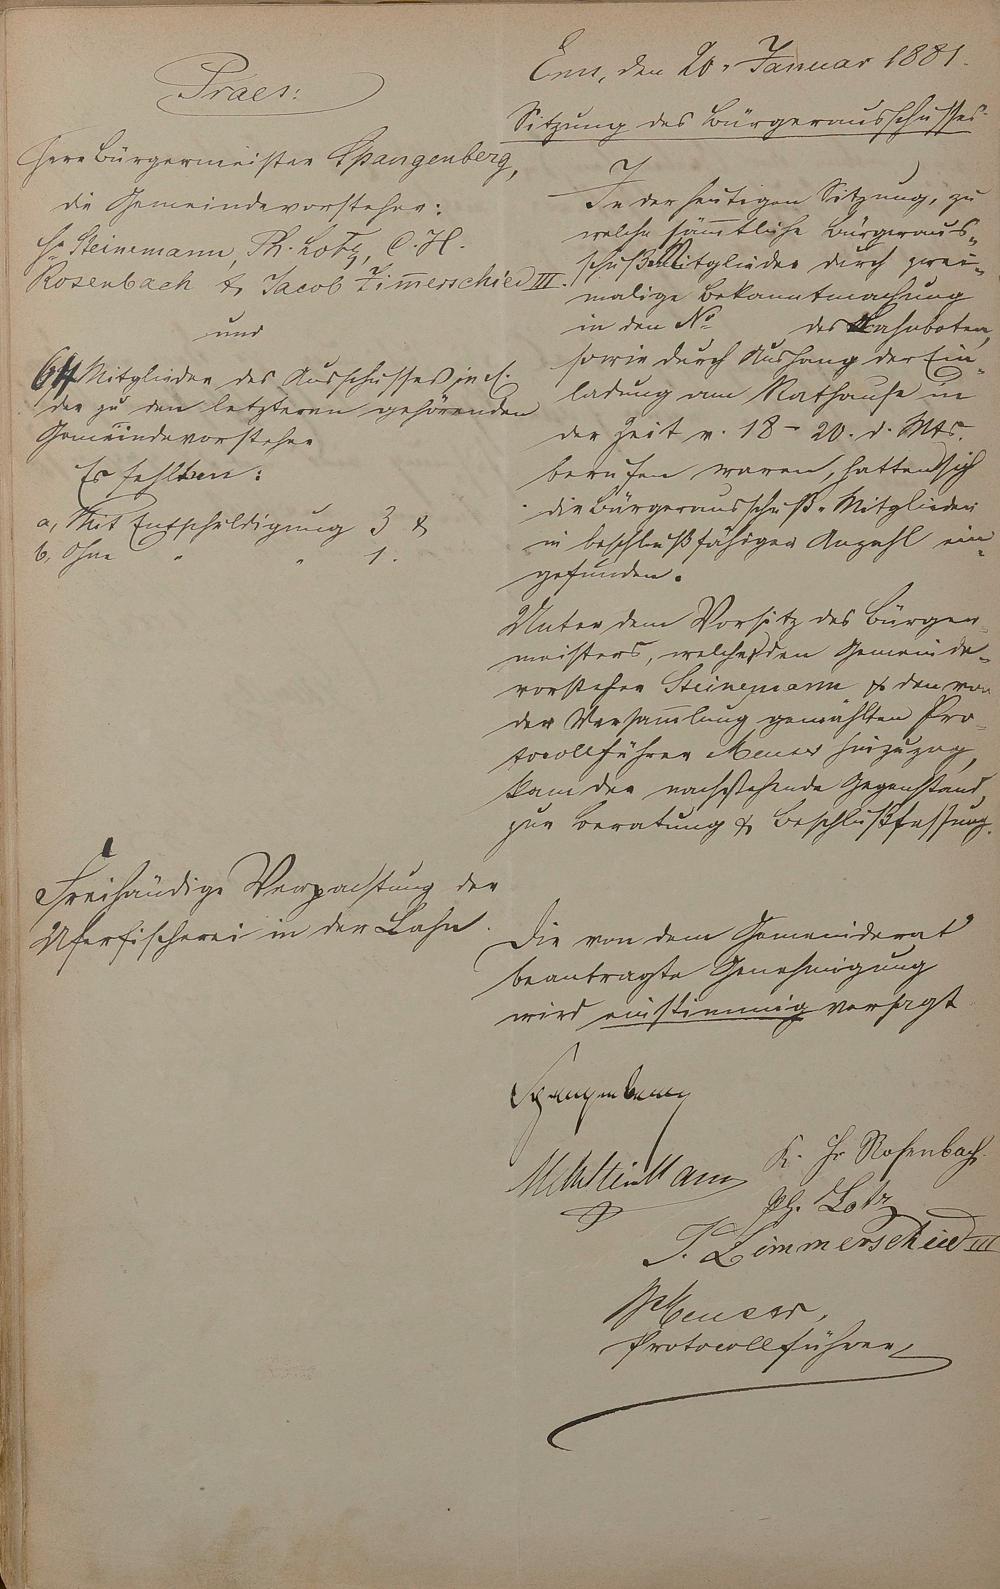 Praes:
Herr Bürgermeister Spangenberg,
die Gemeindevorsteher:
Hr Steinemann, Ph. Lotz, C. H.
Rosenbach & Jacob Zim̅erschied III.
und
64 Mitglieder des Ausschusses incl.
der zu den letzteren gehörenden
Gemeindevorsteher
Es fehlten:
a, Mit Entschuldigung 3 &
b, Ohne " " 1.
Ems, den 20. Januar 1881.
Sitzung des Bürgerausschusses.
In der heutigen Sitzung, zu
welche säm̅tliche Bürgeraus-
schuß-Mitglieder durch zwei-
malige Bekanntmachung
in den No des Lahnboten,
sowie durch Aushang der Ein-
ladung am Rathause in
der Zeit v. 18 - 20. d. Mts.
berufen waren, hatten sich
die Bürgerausschuß-Mitglieder
in beschlußfähiger Anzahl ein-
gefunden.
Unter dem Vorsitz des Bürger-
meisters, welcher den Gemeinde-
vorsteher Steinemann & den von
der Versam̅lung gewählten Pro-
tocollführer Meuser hinzuzog,
kam der nachstehende Gegenstand,
zur Beratung & Beschlußfassung.
Freihändige Verpachtung der
Uferfischerei in der Lahn.
Die von dem Gemeinderat
beantragte Genehmigung
wird einstimmig versagt
Spangenberg
K. Hr Rosenbach
Ph. Lotz
J. Zimmerschied III
Meuser,
Protocollführer